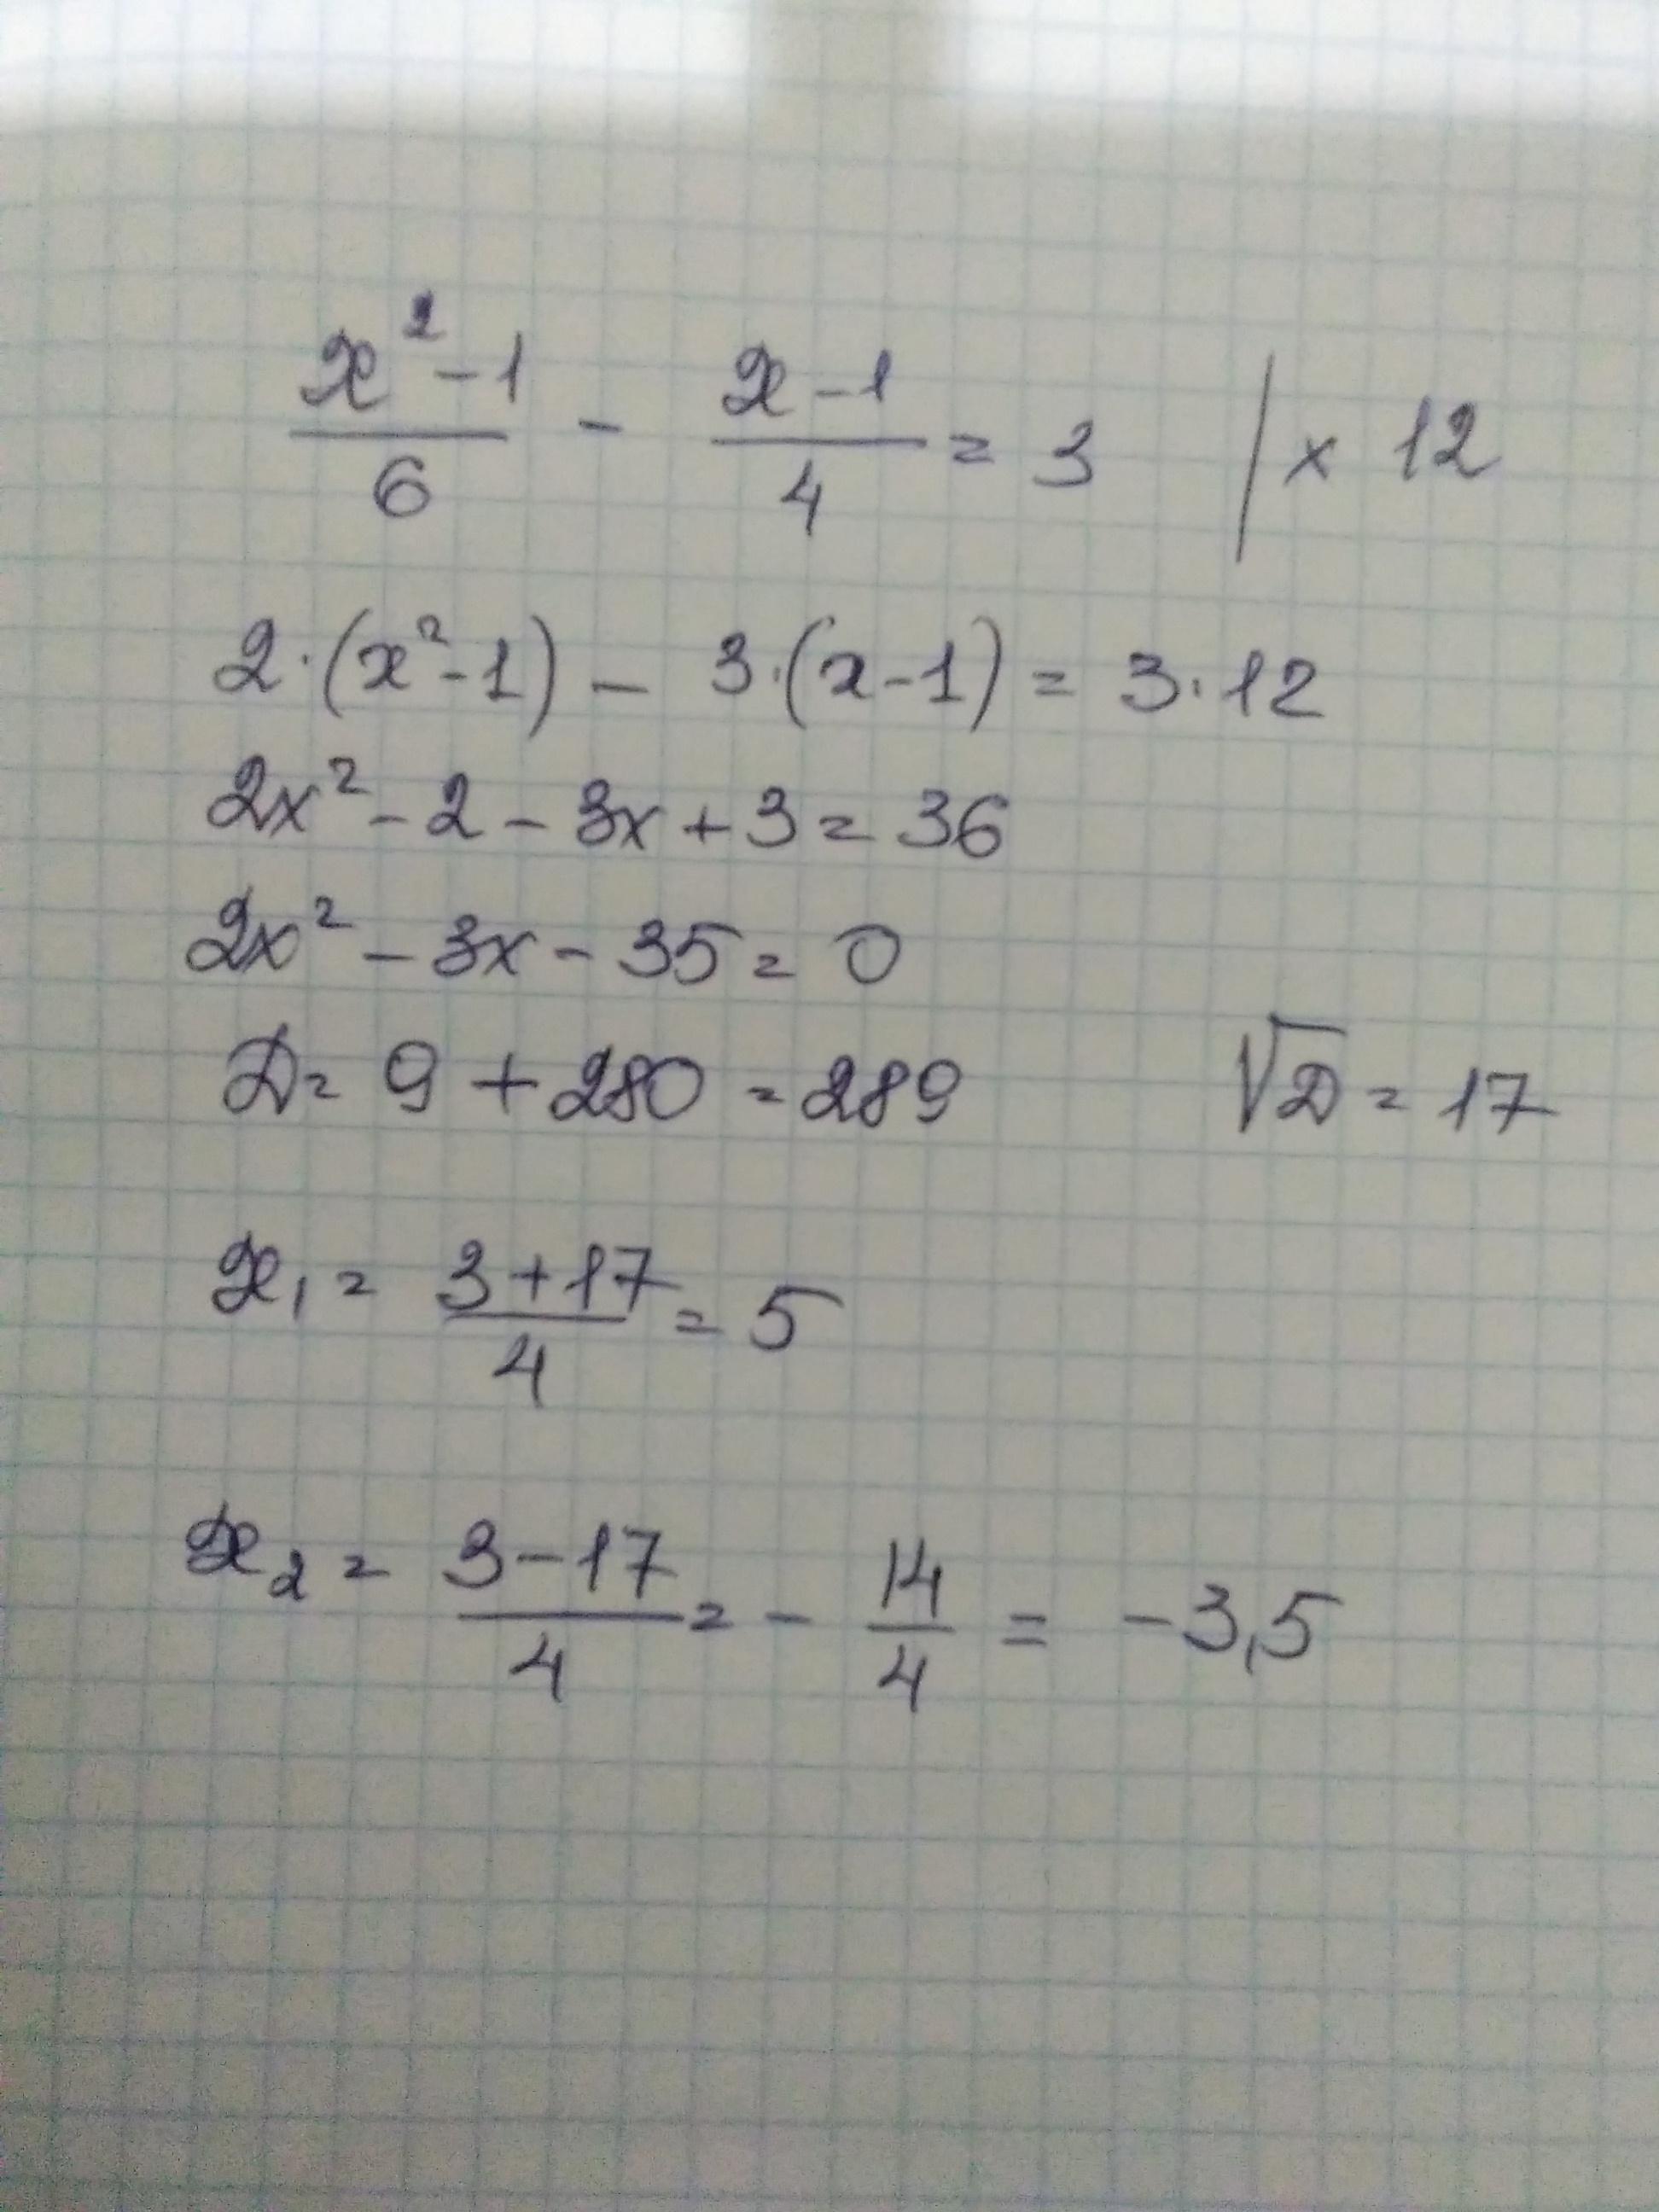 (x² - 1)/6 - (x - 1)/4 = 3 | × 12
2·(x² - 1) - 3·(x - 1) = 3·12
2x² - 2 - 3x + 3 = 36
2x² - 3x - 35 = 0
D = 9 + 280 = 289 √D = 17
x₁ = (3 + 17)/4 = 5
x₂ = (3 - 17)/4 = - 14/4 = -3,5